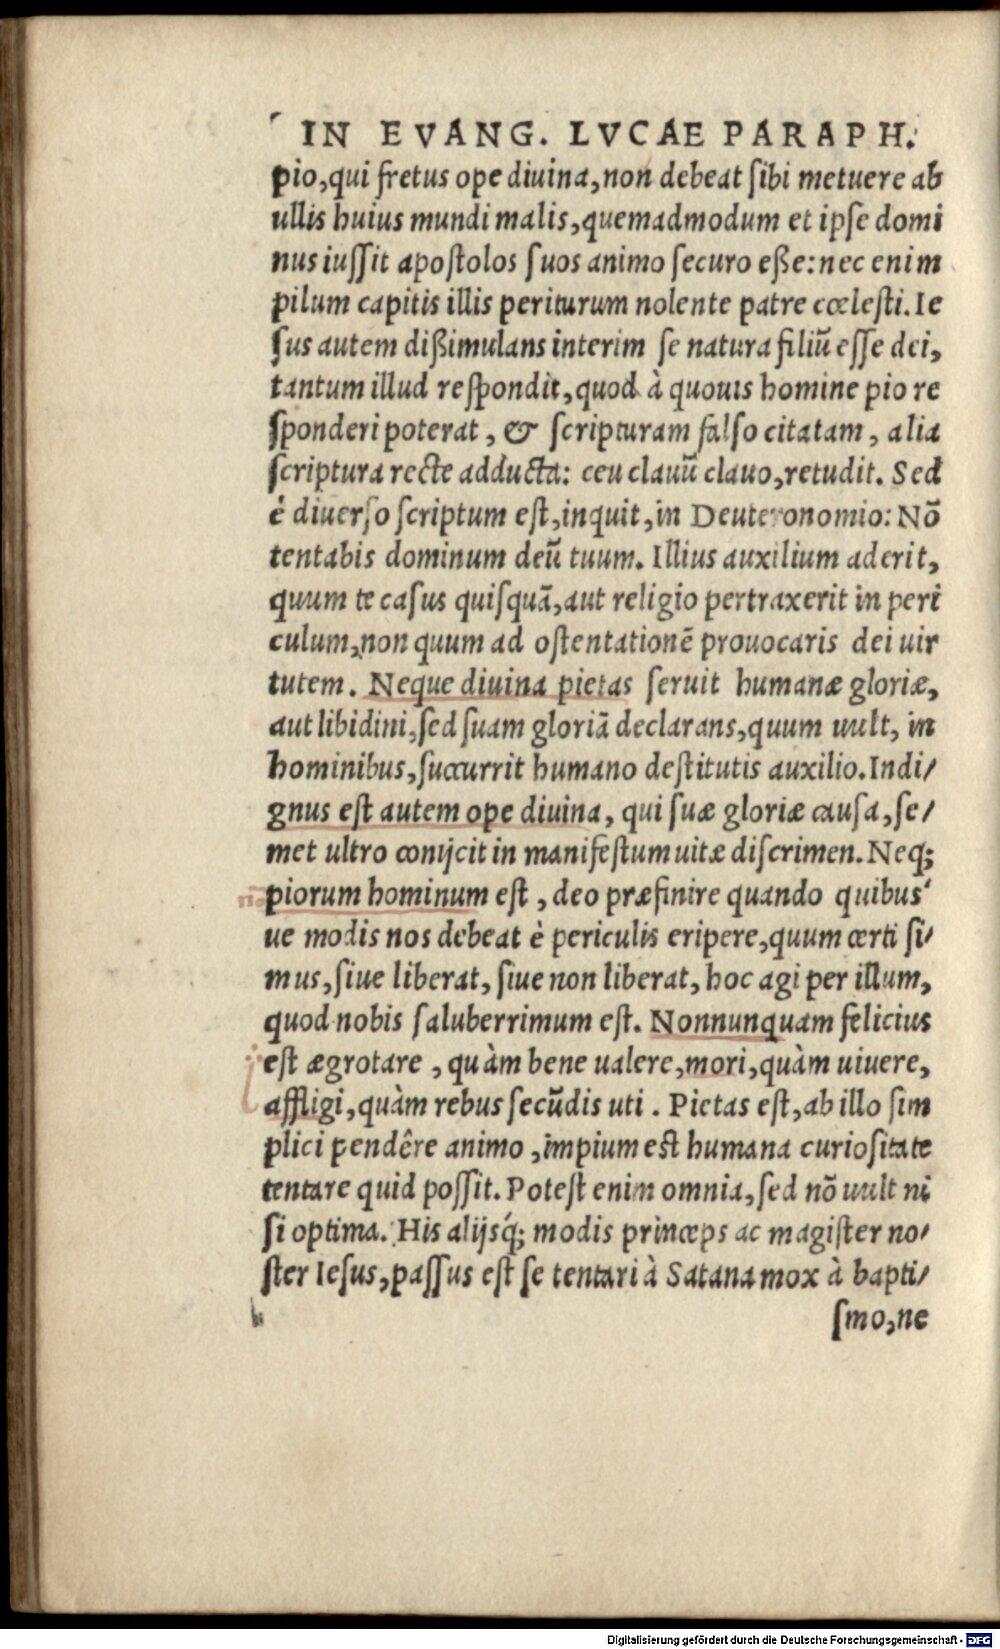 IN EVANG. LVCAE PARAPH.
pio, qui fretus ope diuina, non debeat ſibi metuere ab
ullis huius mundi malis, quemadmodum et ipſe domi
nus iuſſit apoſtolos ſuos animo ſecuro eße: nec enim
pilum capitis illis periturum nolente patre cœleſti. Ie
ſus autem dißimulans interim ſe natura filiũ eſſe dei,
tantum illud reſpondit, quod à quouis homine pio re
ſponderi poterat, & ſcripturam falſo citatam, alia
ſcriptura recte adducta: ceu clauũ clauo, retudit. Sed
è diuerſo ſcriptum eſt, inquit, in Deuteronomio: Nõ
tentabis dominum deũ tuum. Illius auxilium aderit,
quum te caſus quiſquã, aut religio pertraxerit in peri
culum, non quum ad oſtentationẽ prouocaris dei uir
tutem. Neque diuina pietas ſeruit humanæ gloriæ,
aut libidini, ſed ſuam gloriã declarans, quum uult, in
hominibus, ſuccurrit humano deſtitutis auxilio. Indi/
gnus eſt autem ope diuina, qui ſuæ gloriæ cauſa, ſe/
met ultro conijcit in manifeſtum uitæ diſcrimen. Neq;
piorum hominum eſt, deo præfinire quando quibus'
ue modis nos debeat è periculis eripere, quum certi ſi/
mus, ſiue liberat, ſiue non liberat, hoc agi per illum,
quod nobis ſaluberrimum eſt. Nonnunquam felicius
eſt ægrotare, quàm bene ualere, mori, quàm uiuere,
affligi, quàm rebus ſecũdis uti. Pietas eſt, ab illo ſim
plici pendêre animo, impium eſt humana curioſitate
tentare quid poſſit. Poteſt enim omnia, ſed nõ uult ni
ſi optima. His alijsq́; modis princeps ac magiſter no/
ſter Ieſus, paſſus eſt ſe tentari à Satana mox à bapti/
ſmo, ne
Digitalisierung gefördert durch die Deutsche Forschungsgemeinschaft - DFG